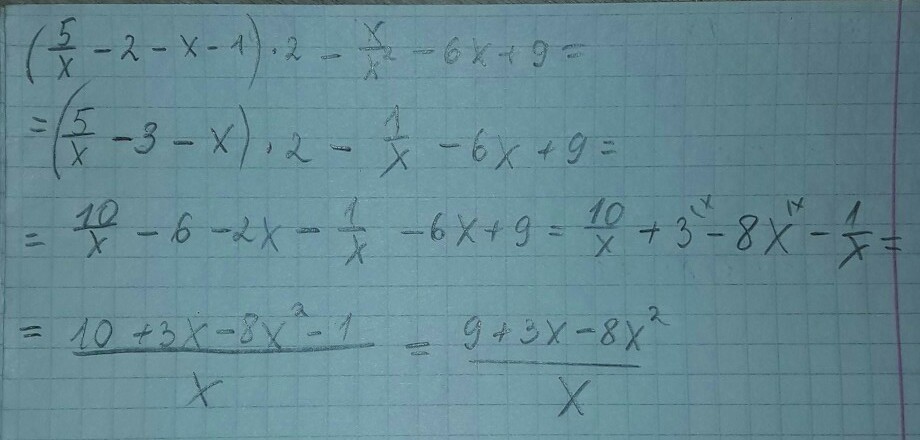 (5/x - 2 - x - 1) · 2 - x/x² - 6x + 9 =
= (5/x - 3 - x) · 2 - 1/x - 6x + 9 =
= 10/x - 6 - 2x - 1/x - 6x + 9 = 10/x + 3^(x - 8x^(x - 1/x =
= (10 + 3x - 8x² - 1)/x = (9 + 3x - 8x²)/x